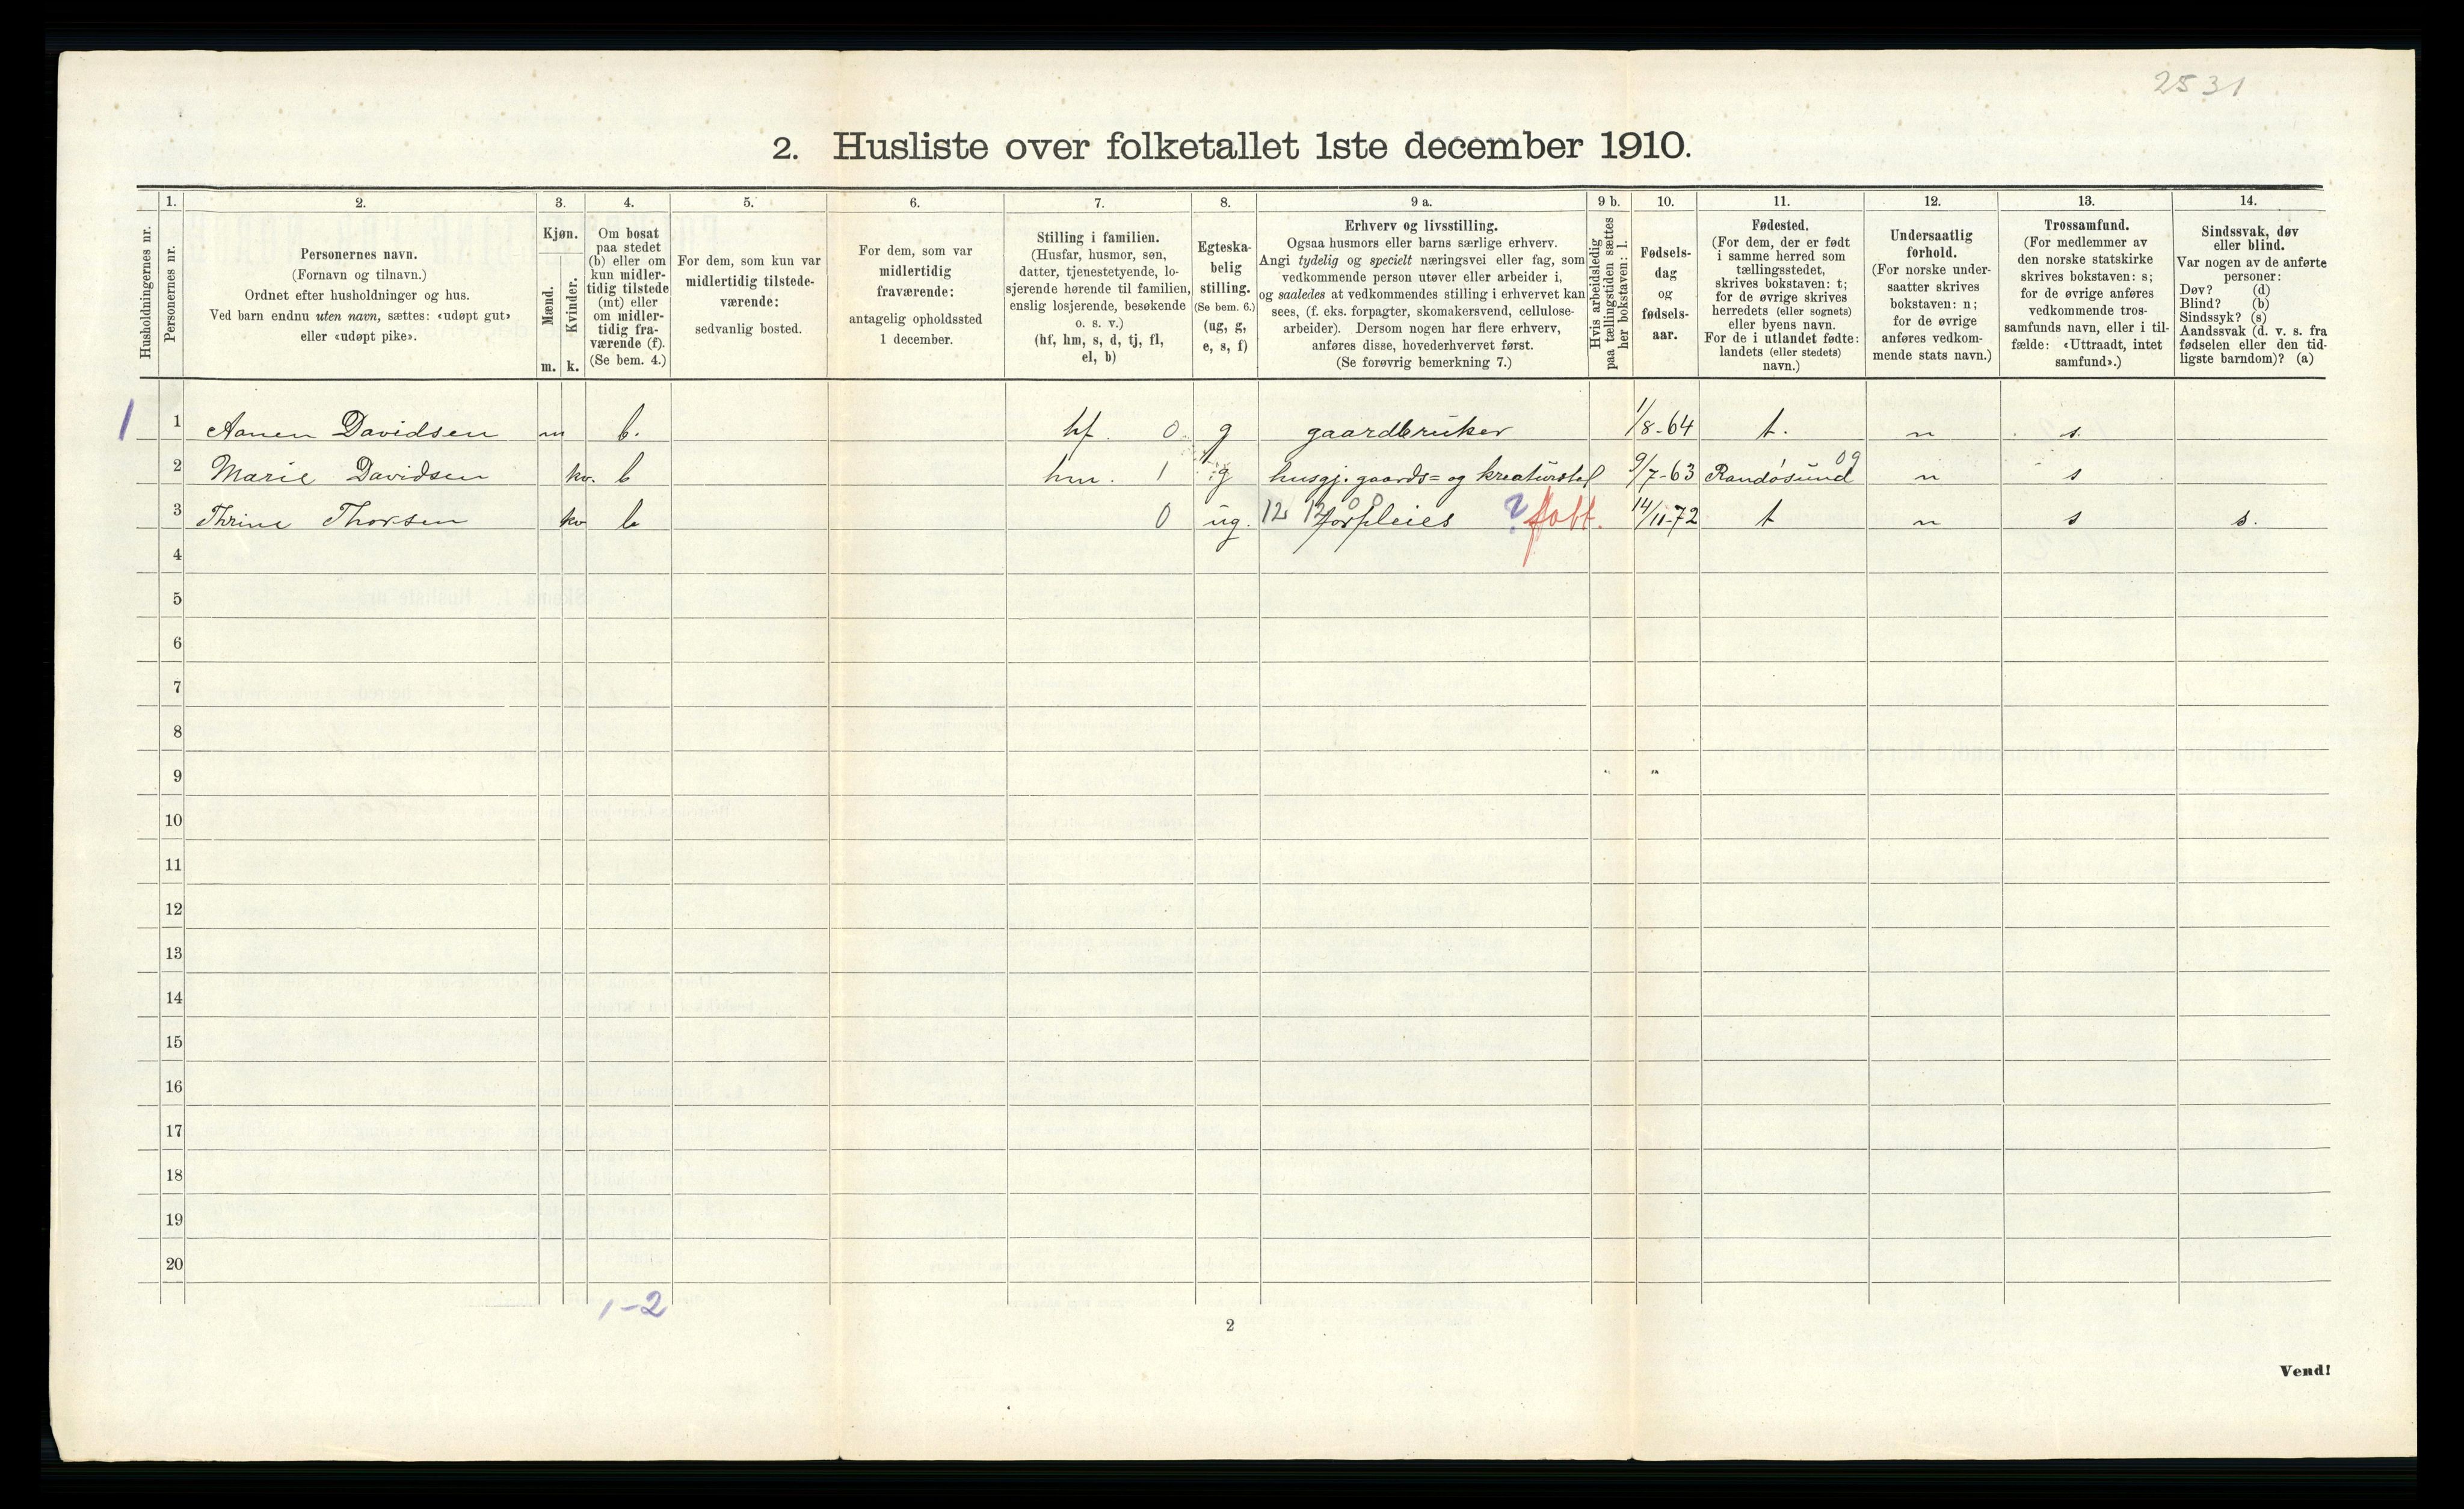 2531
2. Husliste over folketallet 1ste december 1910.
1. 2. 3. 4. 5. 6. 7. 8. 9 a. 9 b. 10. 11. 12. 13. 14.
Husholdningernes nr.
Personernes nr.
Personernes navn.
(Fornavn og tilnavn.)
Ordnet efter husholdninger og hus.
Ved barn endnu uten navn, sættes: «udøpt gut»
eller «udøpt pike».
Kjøn.
Mænd.
Kvinder.
m. k.
Om bosat
paa stedet
(b) eller om
kun midler-
tidig tilstede
(mt) eller
om midler-
tidig fra-
værende (f).
(Se bem. 4.)
For dem, som kun var
midlertidig tilstede-
værende:
sedvanlig bosted.
For dem, som var
midlertidig
fraværende:
antagelig opholdssted
1 december.
Stilling i familien.
(Husfar, husmor, søn,
datter, tjenestetyende, lo-
sjerende hørende til familien,
enslig losjerende, besøkende
o. s. v.)
(hf, hm, s, d, tj, fl,
el, b)
Egteska-
belig
stilling.
(Se bem. 6.)
(ug, g,
e, s, f)
Erhverv og livsstilling.
Ogsaa husmors eller barns særlige erhverv.
Angi tydelig og specielt næringsvei eller fag, som
vedkommende person utøver eller arbeider i,
og saaledes at vedkommendes stilling i erhvervet kan
sees, (f. eks. forpagter, skomakersvend, cellulose-
arbeider). Dersom nogen har flere erhverv,
anføres disse, hovederhvervet først.
(Se forøvrig bemerkning 7.)
Hvis arbeidsledig
paa tællingstiden sættes
her bokstaven: l.
Fødsels-
dag
og
fødsels-
aar.
Fødested.
(For dem, der er født
i samme herred som
tællingsstedet,
skrives bokstaven: t;
for de øvrige skrives
herredets (eller sognets)
eller byens navn.
For de i utlandet fødte:
landets (eller stedets)
navn.)
Undersaatlig
forhold.
(For norske under-
saatter skrives
bokstaven: n;
for de øvrige
anføres vedkom-
mende stats navn.)
Trossamfund.
(For medlemmer av
den norske statskirke
skrives bokstaven: s;
for de øvrige anføres
vedkommende tros-
samfunds navn, eller i til-
fælde: «Uttraadt, intet
samfund».)
Sindssvak, døv
eller blind.
Var nogen av de anførte
personer:
Døv? (d)
Blind? (b)
Sindssyk? (s)
Aandssvak (d. v. s. fra
fødselen eller den tid-
ligste barndom)? (a)
1 1 Aanen Davidsen m b. hf. 0 g gaardbruker 1/8-64 t. n s.
2 Marie Davidsen kv. b hm. 1 g husgj. gaards= og kreaturstel 9/7-63 Randøsund 09 n s
3 Thrine Thorsen kv b 0 ug. forpleies ? 14/11-72 t n s s.
4
5
6
7
8
9
10
11
12
13
14
15
16
17
18
19
20
1-2
2
Vend!